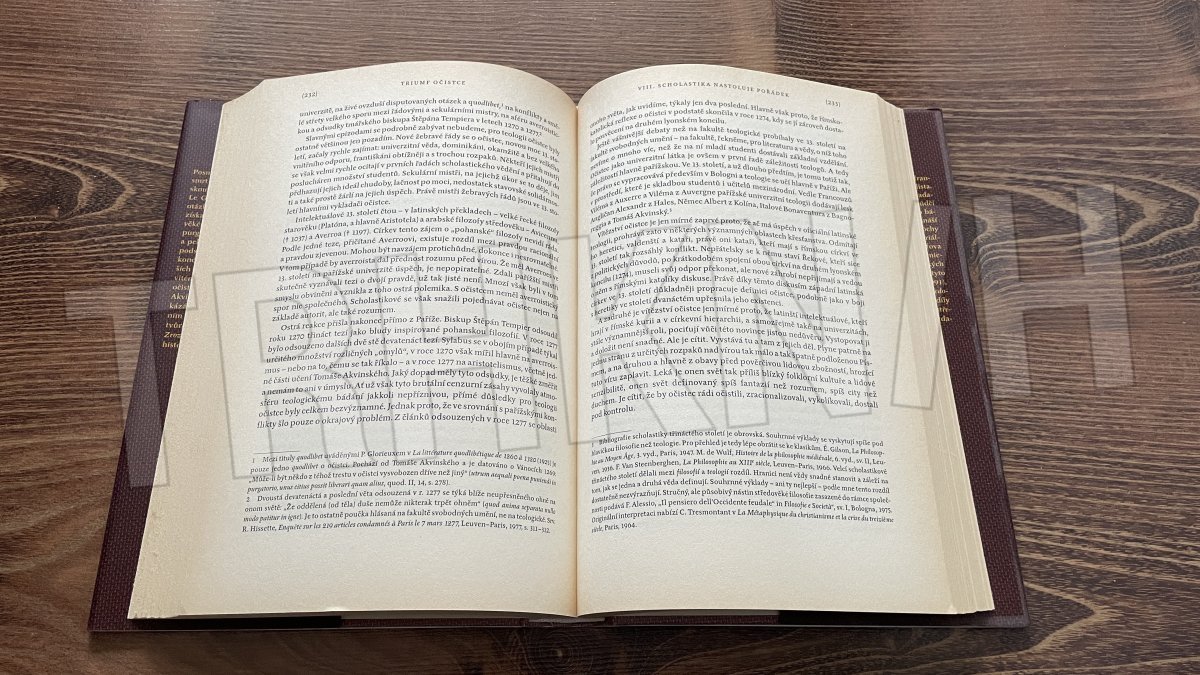 TRIUMF OČISTCE
(232)
univerzitě, na živé ovzduší disputovaných otázek a quodlibet,¹ na konflikty a smě-
lé střety velkého sporu mezi řádovými a sekulárními mistry, na aféru averroistic-
kou a odsudky tmářského biskupa Štěpána Tempiera v letech 1270 a 1277.²
Slavnými epizodami se podrobně zabývat nebudeme, pro teologii očistce byly
ostatně většinou jen pozadím. Nové žebravé řády se o očistec, novou moc 13. sto-
letí, začaly rychle zajímat: univerzitní věda, dominikáni, okamžitě a bez velkého
vnitřního odporu, františkáni obtížněji a s trochou rozpaků. Někteří jejich mistři
se však velmi rychle ocitají v prvních řadách scholastického vědění a přitahují do
poslucháren množství studentů. Sekulární mistři, na jejichž úkor se to děje, jim
předhazují jejich ideál chudoby, lačnost po moci, nedostatek stavovské solidárnos-
ti a také prostě žárlí na jejich úspěch. Právě mistři žebravých řádů jsou ve 13. sto-
letí hlavními vykladači očistce.
Intelektuálové 13. století čtou – v latinských překladech – velké řecké filozofy
starověku (Platóna, a hlavně Aristotela) a arabské filozofy středověku – Avicennu
(† 1037) a Averroa († 1397). Církev tento zájem o „pohanské“ filozofy nevidí ráda.
Podle jedné teze, přičítané Averroovi, existuje rozdíl mezi pravdou racionální
a pravdou zjevenou. Mohou být navzájem protichůdné, dokonce i nesrovnatelné.
V tom případě by averroista dal přednost rozumu před vírou. Že měl Averroes ve
13. století na pařížské univerzitě úspěch, je nepopiratelné. Zdali pařížští mistři
skutečně vyznávali tezi o dvojí pravdě, už tak jisté není. Mnozí však byli v tomto
smyslu obviněni a vznikla z toho ostrá polemika. S očistcem neměl averroistický
spor nic společného. Scholastikové se však snažili pojednávat očistec nejen na
základě autorit, ale také rozumem.
Ostrá reakce přišla nakonec přímo z Paříže. Biskup Štěpán Tempier odsoudil
roku 1270 třináct tezí jako bludy inspirované pohanskou filozofií. V roce 1277
bylo odsouzeno dalších dvě stě devatenáct tezí. Sylabus se v obojím případě týkal
určitého množství rozličných „omylů“, v roce 1270 však mířil hlavně na averrois-
mus – nebo na to, čemu se tak říkalo – a v roce 1277 na aristotelismus, včetně jed-
né části učení Tomáše Akvinského. Jaký dopad měly tyto odsudky, je těžké změřit
a nemám to ani v úmyslu. Ať už však tyto brutální cenzurní zásahy vyvolaly atmo-
sféru teologickému bádání jakkoli nepříznivou, přímé důsledky pro teologii
očistce byly celkem bezvýznamné. Jednak proto, že ve srovnání s pařížskými kon-
flikty šlo pouze o okrajový problém. Z článků odsouzených v roce 1277 se oblasti
1 Mezi tituly quodlibet uváděnými P. Glorieuxem v La littérature quodlibétique de 1260 à 1320 (1925) je
pouze jedno quodlibet o očistci. Pochází od Tomáše Akvinského a je datováno o Vánocích 1269:
„Může-li být někdo z téhož trestu v očistci vysvobozen dříve než jiný“ (utrum aequali poena puniendi in
purgatorio, unus citius possit liberari quam alius, quod. II, 14, s. 278).
2 Dvoustá devatenáctá a poslední věta odsouzená v r. 1277 se týká blíže neupřesněného ohně na
onom světě: „Že oddělená (od těla) duše nemůže nikterak trpět ohněm“ (quod anima separata nullo
modo patitur ab igne). Je to ostatně poučka hlásaná na fakultě svobodných umění, ne na teologické. Srv.
R. Hissette, Enquête sur les 219 articles condamnés à Paris le 7 mars 1277, Leuven–Paris, 1977, s. 311–312.
VIII. SCHOLASTIKA NASTOLUJE POŘÁDEK
(233)
onoho světa, jak uvidíme, týkaly jen dva poslední. Hlavně však proto, že římsko-
katolická reflexe o očistci v podstatě skončila v roce 1274, kdy se jí zároveň dosta-
lo posvěcení na druhém lyonském koncilu.
Ještě vášnivější debaty než na fakultě teologické probíhaly ve 13. století na
fakultě svobodných umění – na fakultě, řekněme, pro literaturu a vědy, o níž toho
nevíme o mnoho víc, než že na ní mladí studenti dostávali základní vzdělání.
Očistec jako univerzitní látka je ovšem v první řadě záležitostí teologů. A tedy
záležitostí hlavně pařížskou. Ve 13. století, a už dlouho předtím, je tomu totiž tak,
že právo se vypracovává především v Bologni a teologie se učí hlavně v Paříži. Ale
v prostředí, které je skladbou studentů i učitelů mezinárodní. Vedle Francouzů
Viléma z Auxerre a Viléma z Auvergne pařížské univerzitní teologii dodávají lesk
Angličan Alexandr z Hales, Němec Albert z Kolína, Italové Bonaventura z Bagno-
reggia a Tomáš Akvinský.³
Vítězství očistce je jen mírné zaprvé proto, že ač má úspěch v oficiální latinské
teologii, prohrává zato v některých významných oblastech křesťanstva. Odmítají
ho heretici, valdenští a kataři, právě oni kataři, kteří mají s římskou církví ve
13. století tak rozsáhlý konflikt. Nepřátelsky se k němu staví Řekové, kteří sice
z politických důvodů, po krátkodobém spojení obou církví na druhém lyonském
koncilu (1274), museli svůj odpor překonat, ale nové záhrobí nepřijímají a vedou
o něm s římskými katolíky diskuse. Právě díky těmto diskusím západní latinská
církev ve 13. století důkladněji propracuje definici očistce, podobně jako v boji
s heretiky ve století dvanáctém upřesnila jeho existenci.
A zadruhé je vítězství očistce jen mírné proto, že latinští intelektuálové, kteří
hrají v římské kurii a v církevní hierarchii, a samozřejmě také na univerzitách,
stále významnější roli, pociťují vůči této novince jistou nedůvěru. Vystopovat ji
a doložit není snadné. Ale je cítit. Vyvstává tu a tam z jejich děl. Plyne patrně na
jednu stranu z určitých rozpaků nad vírou tak málo a tak špatně podloženou Pís-
mem, a na druhou a hlavně z obavy před pověrčivou lidovou zbožností, hrozící
tuto víru zaplavit. Leká je onen svět tak příliš blízký folklorní kultuře a lidové
senzibilitě, onen svět definovaný spíš fantazií než rozumem, spíš city než
duchem. Je cítit, že by očistec rádi očistili, zracionalizovali, vykolíkovali, dostali
pod kontrolu.
3 Bibliografie scholastiky třináctého století je obrovská. Souhrnné výklady se vyskytují spíše pod
hlavičkou filosofie než teologie. Pro přehled je tedy lépe obrátit se ke klasikům. É. Gilson, La Philosop-
hie au Moyen Âge, 3. vyd., Paris, 1947. M. de Wulf, Histoire de la philosophie médiévale, 6. vyd., sv. II, Leu-
ven, 1936. F. Van Steenberghen, La Philosophie au XIIIᵉ siècle, Leuven–Paris, 1966. Velcí scholastikové
třináctého století dělali mezi filosofií a teologií rozdíl. Hranici není vždy snadné stanovit a záleží na
tom, jak se jedna a druhá věda definují. Souhrnné výklady – ani ty nejlepší – podle mne tento rozdíl
dostatečně nezvýrazňují. Stručný, ale působivý nástin středověké filosofie zasazené do rámce společ-
nosti podává F. Alessio, „Il pensiero dell'Occidente feudale“ in Filosofie e Società“, sv. I, Bologna, 1975.
Originální interpretaci nabízí C. Tresmontant v La Métaphysique du christianisme et la crise du treizième
siècle, Paris, 1964.